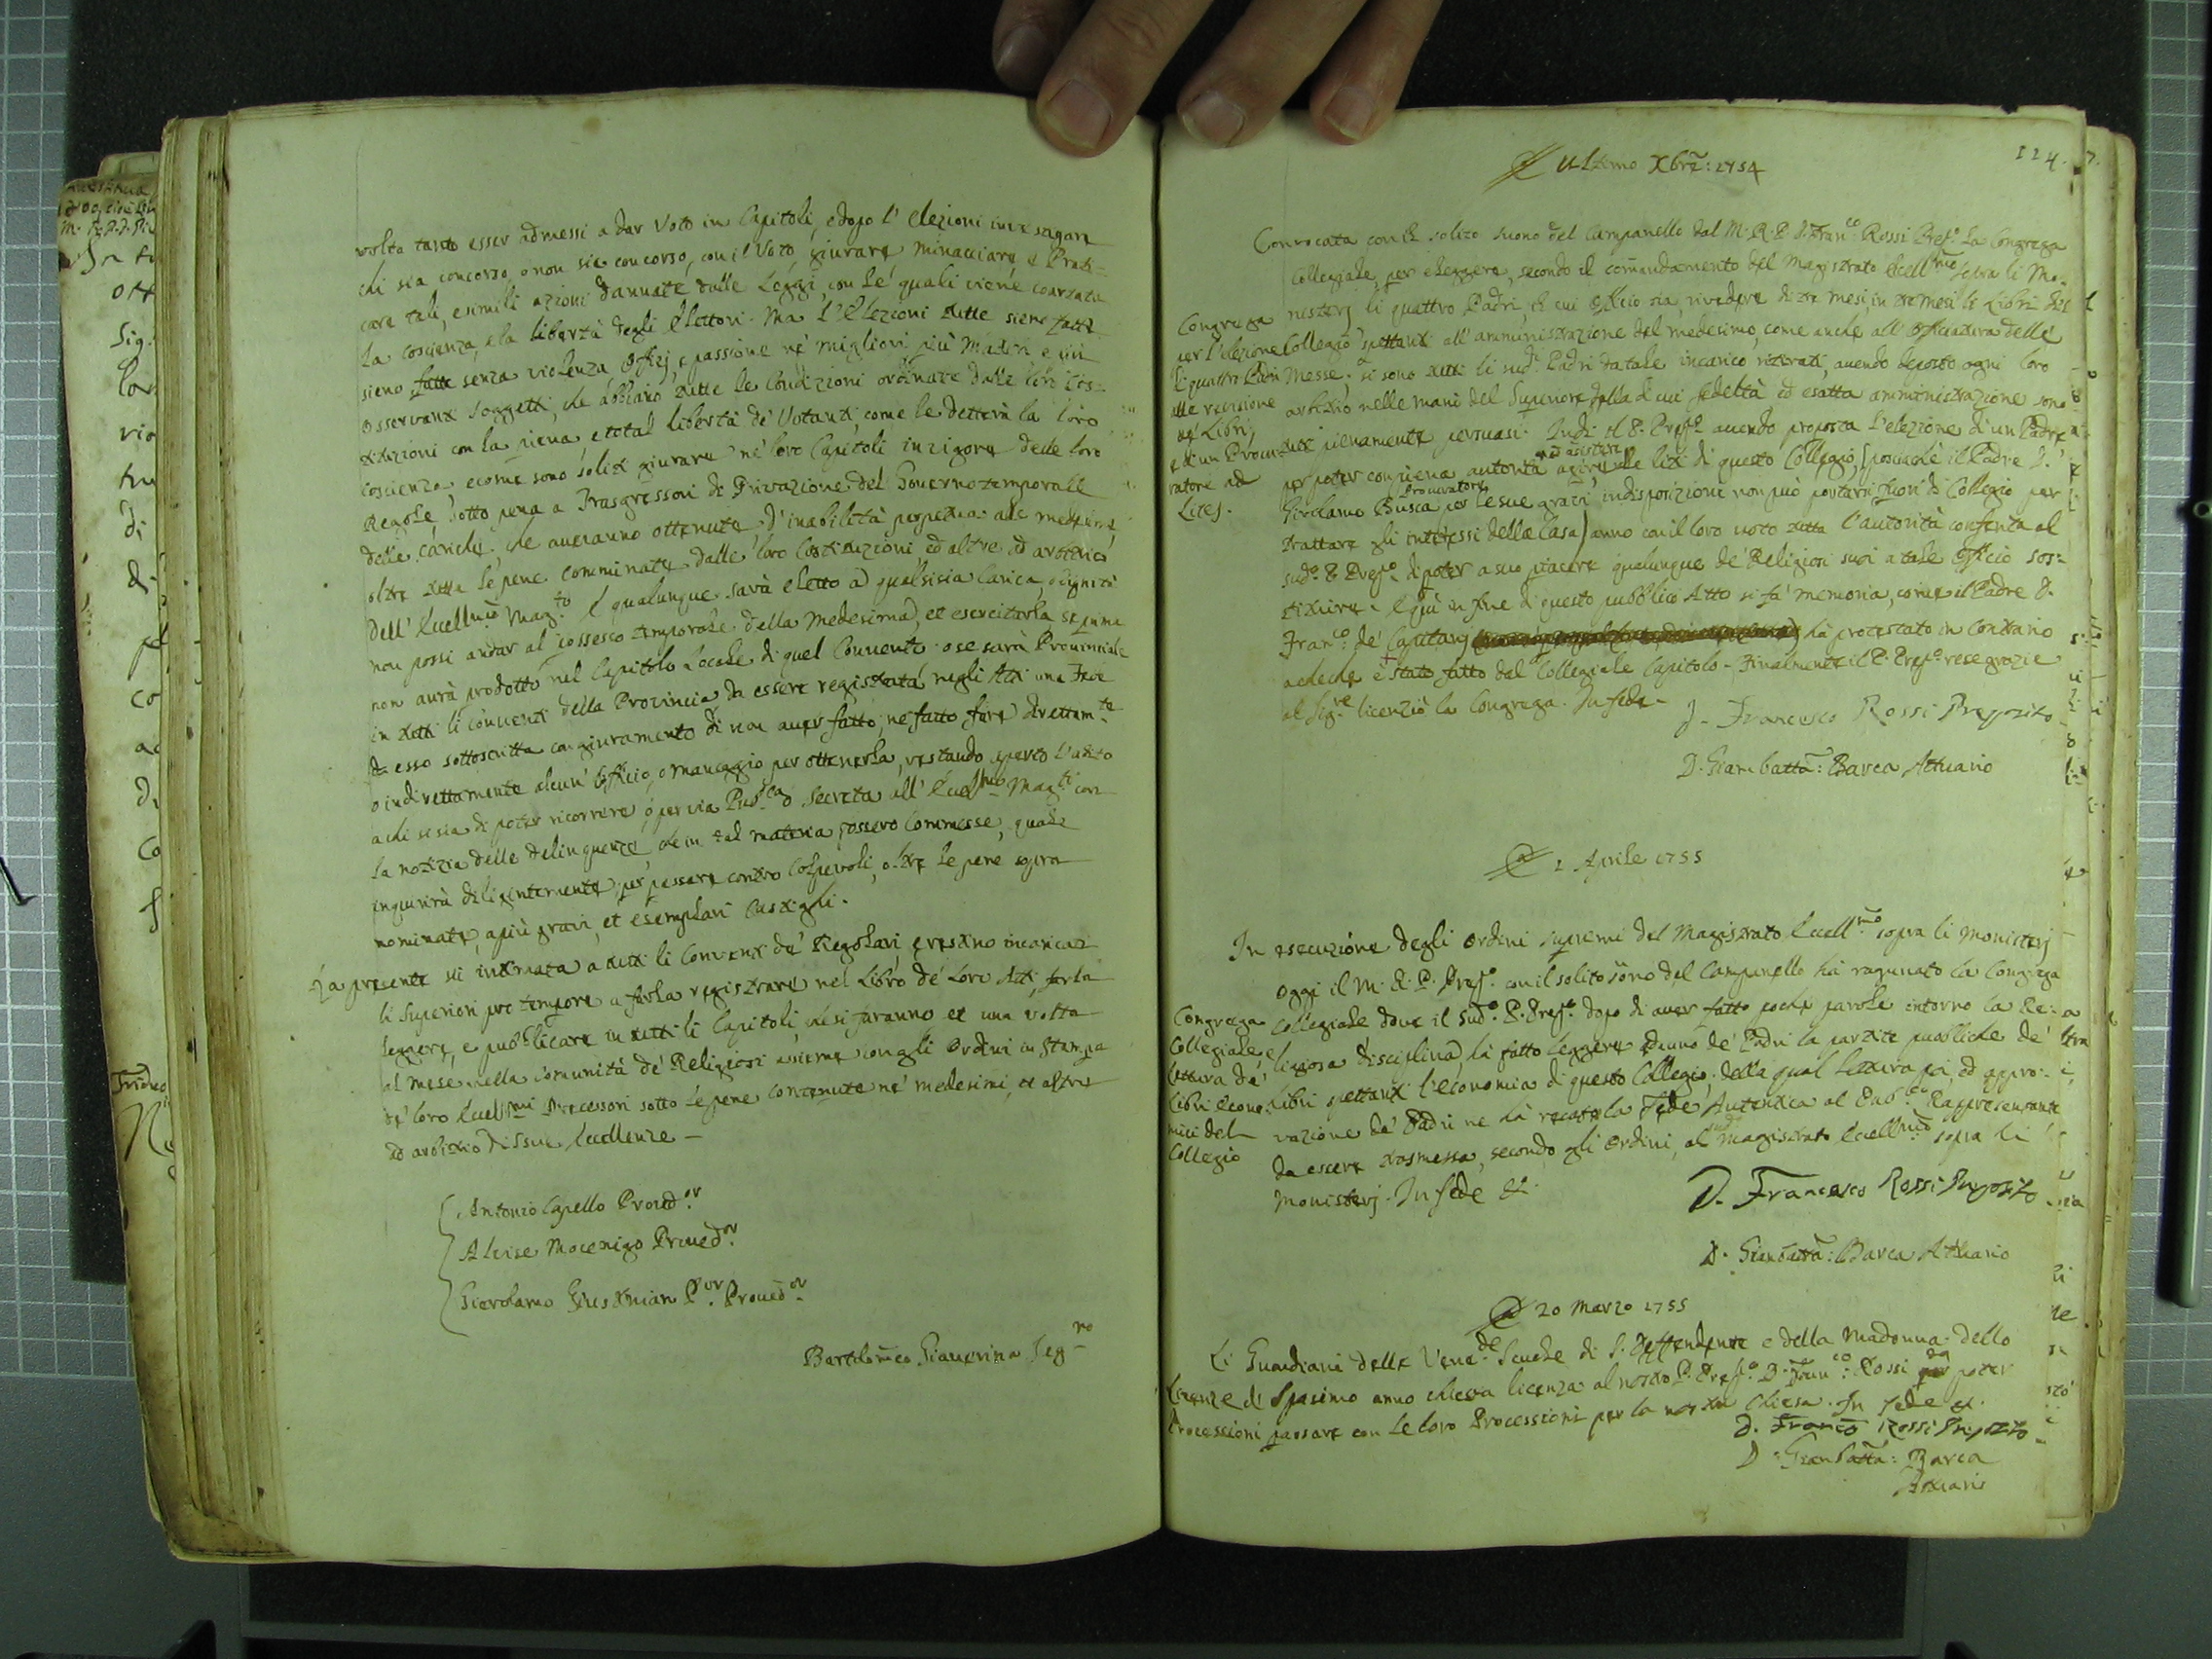 volta tanto esser admessi a dar Voto in Capitoli, e dopo l'elezioni investigare
chi sia concorso, o non sia concorso, con il Voto, giurare, minacciare, e Prati=
care tali, e simili azioni dannate dalle Leggi, con le quali viene coartata
la coscienza, e la libertà degli Elettori. Ma l'Elezioni tutte siene fatte
sieno fatte senza violenza Officj, e passione ne' migliori più Maturi e più
osservanti soggetti, che abbiano tutte le Condizioni ordinate dalle loro Cos=
tituzioni con la piena e total libertà de' Votanti, come le detterà la loro
coscienza, e come sono soliti giurare ne' loro Capitoli in vigore delle loro
Regole, sotto pena a Trasgressori di Privazione del Governo temporale
delle cariche, che averanno ottenute, d'inabilità perpetua alle medesime,
oltre tutte le pene comminate dalle loro Costituzioni ed altre ad arbitrio
dell' Eccellmo Magto. E qualunque sarà eletto a qualsisia Carica, o dignità
non possi andar al possesso temporale della medesima, et esercitarla se prima
non avrà prodotto nel Capitolo Locale di quel Convento o se sarà Provinciale
in tutti li conventi della Provincia, da essere registrata negli Atti una Fede
da esso sottoscritta con giuramento di non aver fatto, ne fatto fare direttamte
o indirettamente alcun' Officio, o maneggio per ottenerla, restando aperto l'adito
a chi si sia di poter ricorrere, o per via Pubca o secreta all' Eccellmo Magto con
la notizia delle delinquenze, che in tal materia fossero commesse, quale
inquirirà diligentemente per passare contro Colpevoli, oltre le pene sopra
nominate, a più gravi, et esemplari Castighi.
La presente sii intimata a tutti li Conventi de' Regolari, e restino incaricati
li Superiori pro tempore a farla registrare nel Libro de' loro Atti, farla
leggere, e pubblicare in tutti li Capitoli, che si faranno et una volta
al mese nella comunità de' Religiosi assieme con gli Ordini in stampa
de' loro Eccellmi Precessori sotto le pene contenute ne' medesimi, et altre
ad arbitrio di Sue Eccellenze -
Antonio Capello Proved.or
Alvise Mocenigo Proved.or
Gierolamo Giustinian P.or Proved.or
Bartolomeo Giaverina Seg.ro
124.
A ultimo Xbre: 1754
Convocata con il solito suono del Campanello dal M. R. P. D. Franco. Rossi Prepo. la Congrega
Collegiale, per eleggere, secondo il comandamento del Magistrato Eccellmo sopra li Mo=
nisterj li quattro Padri, il cui Officio sia, rivedere di tre mesi, in tre mesi li Libri del
Collegio spettanti all' amministrazione del medesimo, come anche all' Officiatura delle
Messe, si sono tutti li sudi. Padri da tale incarico ritirati, avendo deposto ogni loro
arbitrio nelle mani del Superiore, della di cui fedeltà ed esatta amministrazione sono
tutti pienamente persuasi. Indi il P. Prepo. avendo proposta l'elezione d'un Padre
ad assistere
per poter con piena autorità agire alle liti di questo Collegio, (posciachè il Padre D.
Procuratore
Girolamo Busca per le sue gravi indisposizione non può portarsi fuori di Collegio per
trattare gli interessi della Casa) anno con il loro voto tutta l'autorità conferita al
sudo. P. Prepo. di poter a suo piacere qualunque de' Religiosi suoi a tale Officio sos=
tituire. E più in fine di questo pubblico Atto si fà memoria, come il Padre D.
Franco. de' Capitanj hà protestato in contrario
a ciò che è stato fatto dal Collegiale Capitolo - Finalmente il P. Prepo. rese grazie
al Sigre licenziò la Congrega. In fede -
D. Francesco Rossi Preposito
D. Giambatta: Barca Attuario
Congrega
per l'elezione
di quattro Padri
alle revisione
de' Libri,
e di un Procu=
ratore ad
Lites.
A 1 Aprile 1755
In esecuzione degli ordini supremi del Magistrato Eccellmo. sopra li Monisterj
oggi il M. R. P. Prepo. con il solito sono del Campanello hà ragunato la Congrega
Collegiale dove il sudo. P. Prepo. dopo di aver fatto poche parole intorno la Re=
ligiosa disciplina, hà fatto leggere ad uno de' Padri la partite pubbliche de'
Libri spettanti l'economia di questo Collegio; della qual Lettura poi, ed appro=
vazione de' Padri ne hà recata la Fede Autentica al Pubco. Rappresentante
da essere trasmessa, secondo gli Ordini, al sudo Magistrato Eccellmo sopra li
Monisterj. In fede &.
D. Francesco Rossi Preposito
D. Giambatta: Barca Attuario
Congrega
Collegiale, e
lettura de'
Libri econo=
mici del
Collegio
A 20 Marzo 1755
Li Guardiani delle Venede. Scuole di S. Deffendente e della Madonna dello
Spasimo anno chiesta licenza al nostro P. Prepo. D. Franco: Rossi da poter
passare con le loro Processioni per la nostra Chiesa. In fede &.
D. Franco Rossi Preposito
D. Giambatta: Barca
Attuario
Licenze di
Processioni